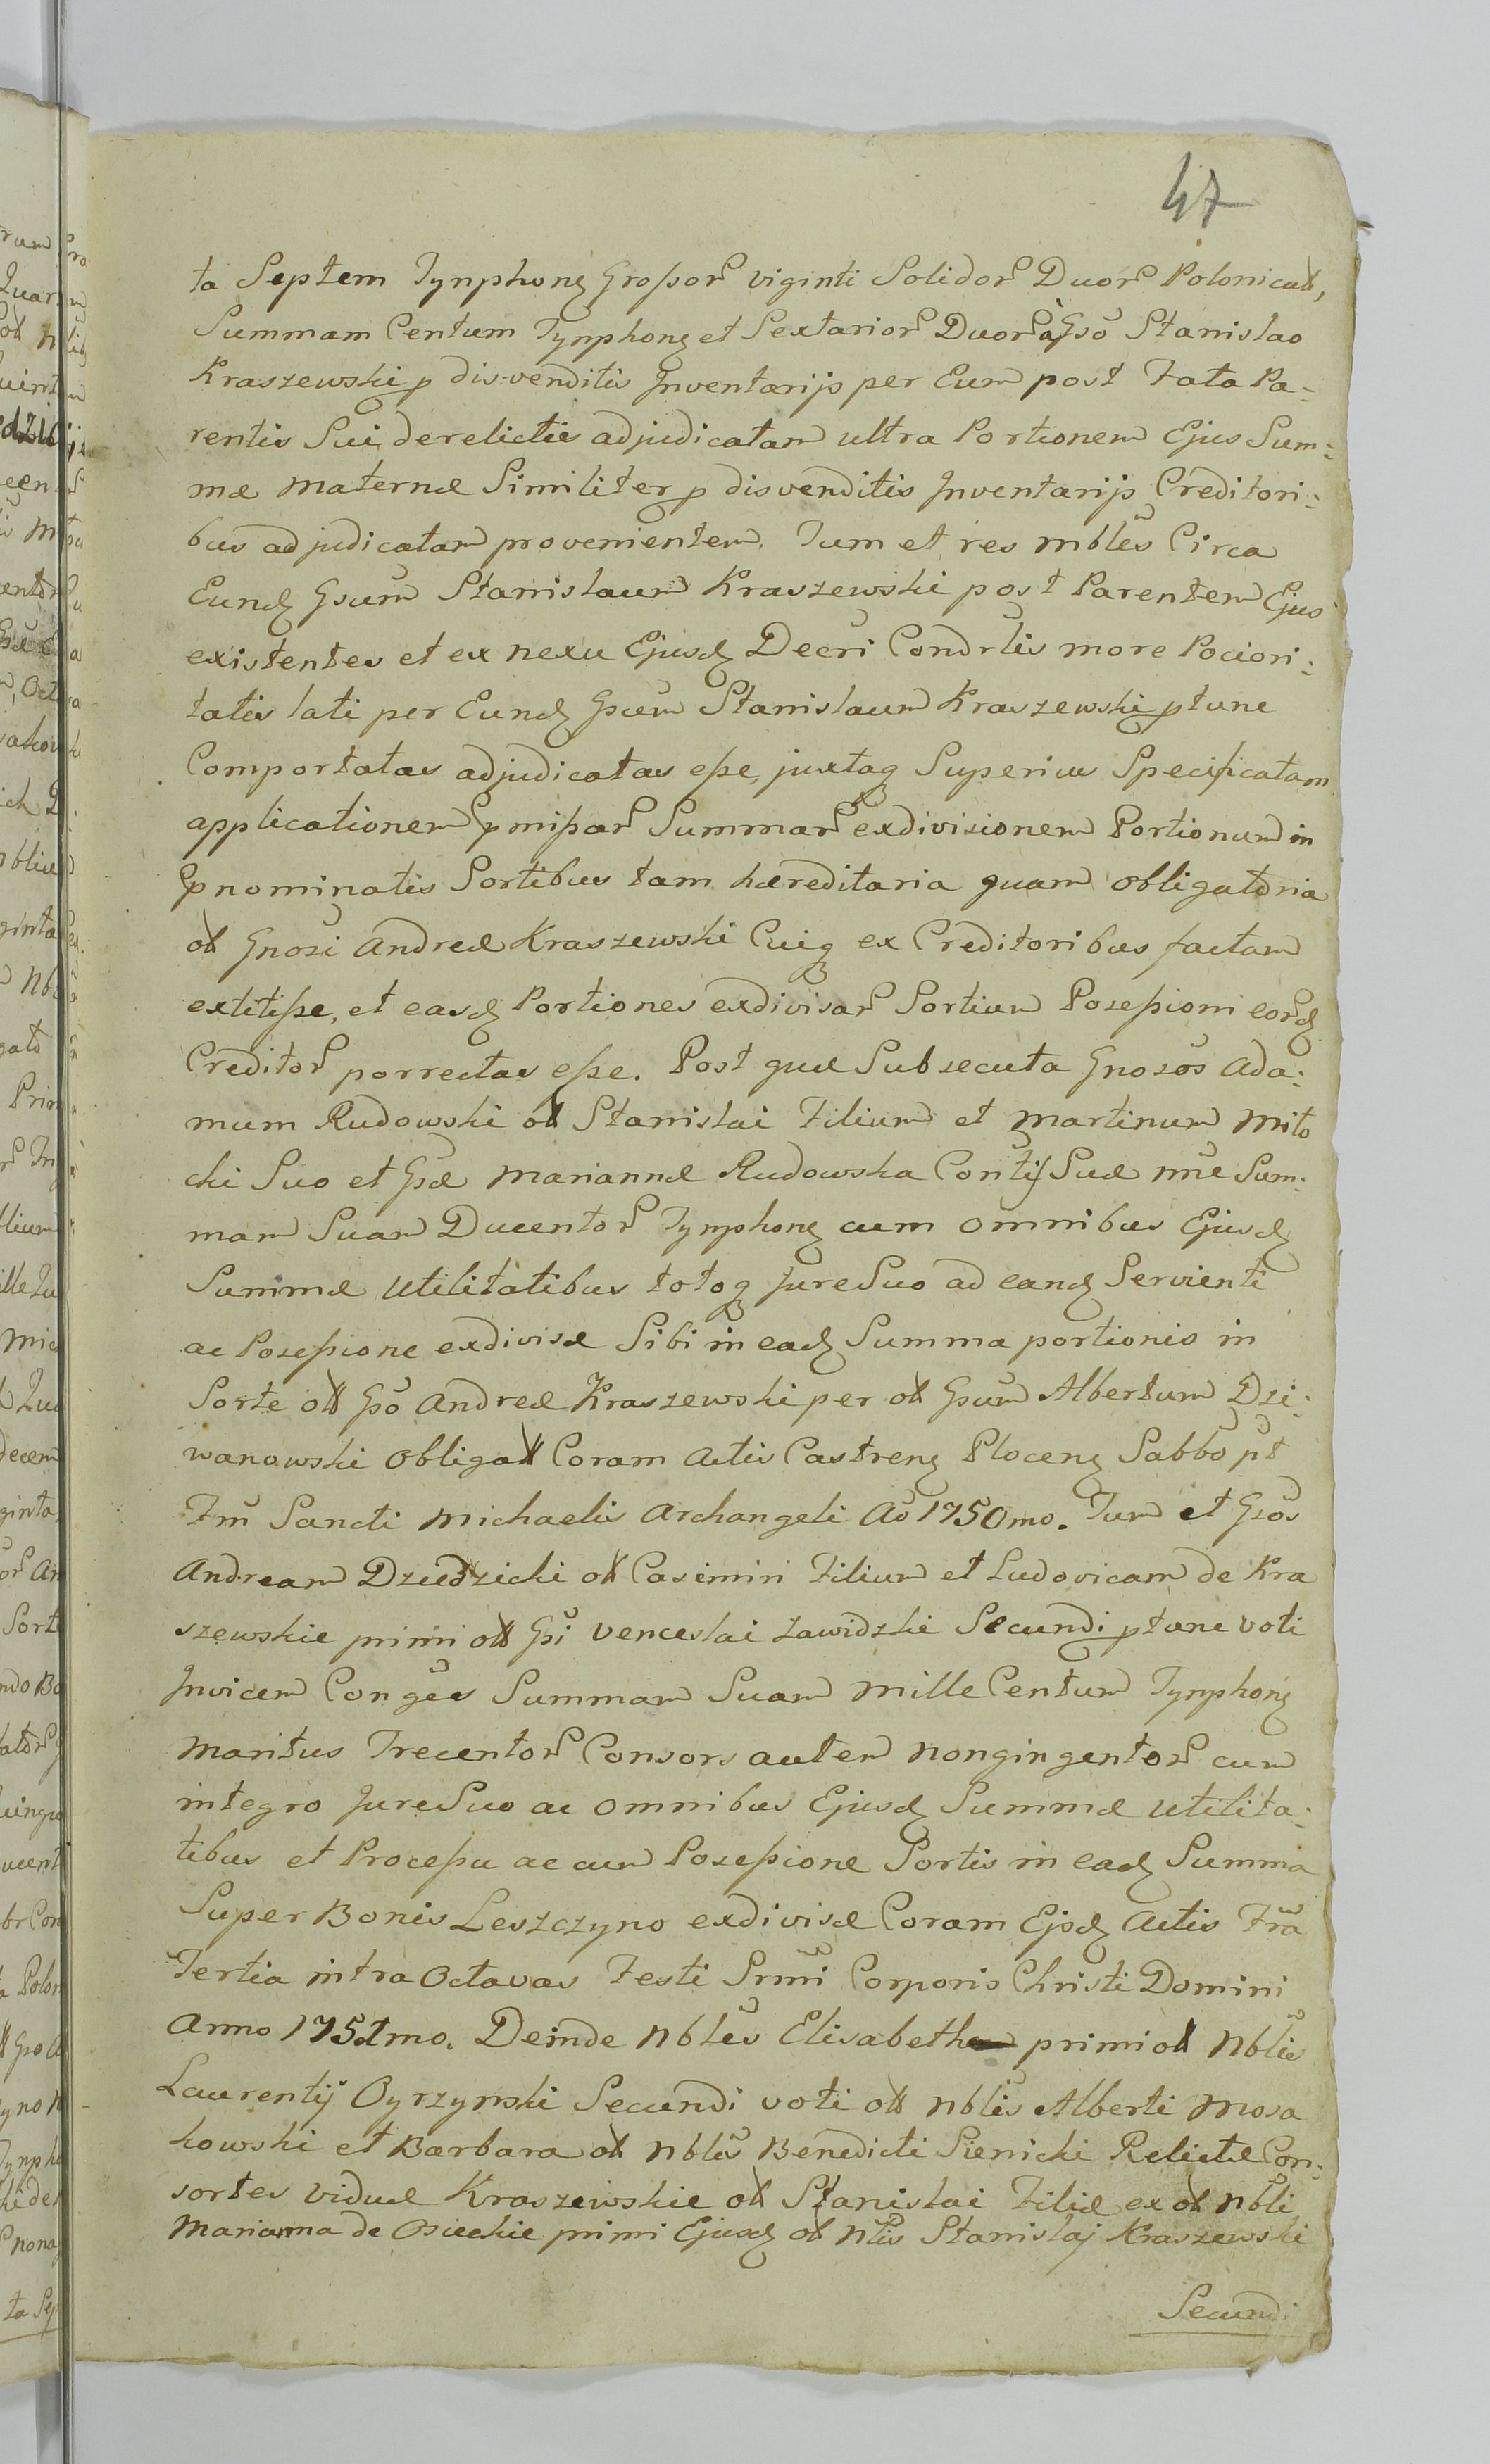 47
ta Septem Tynphonꝫ Großorꝝ viginti Solidorꝝ Duorꝝ Polonicał,
Summam Centum Tynphonꝫ et Sextariorꝝ Duorꝝ à Gső Stanislao
Kraszewski p disvenditis Inventarijs per Eum post Fata Pa-
rentis Sui derelictis adjudicatam ultra Portionem Ejus Sum:
mæ Maternæ Similiter p disvenditis Inventarijs Creditori:
bus adjudicatam provenientem. Tum et res mbles Circa
Eundꝫ Gsum Stanislaum Kraszewski post Parentem Ejus
existentes et ex nexu Ejusdꝫ Decri Condrtis more Pociori:
tatis lati per Eundꝫ Gsum Stanislaum Kraszewski ptunc
Comportatas adjudicatas eße, juxtaqꝫ Superius Specificatam
applicationem pmißarꝝ Summarꝝ exdivisionem Portionum in
Ppnominatis Sortibus tam hæreditaria quam obligatoria
oł Gnosi Andreæ Kraszewski Cuiqꝫ ex Creditoribus factam
extitiße, et easdꝫ Portiones exdivisarꝝ Sortium Poseßioni eorꝝdꝫ
Creditorꝝ porrectas eße. Post quæ Subsecuta Gnosos Ada:
mum Rudowski oł Stanislai Filium et Martinum Mito
cki Suo et Gsæ Mariannæ Rudowska Contis Suæ nne Sum:
mam Suam Ducentorꝝ Tynphonꝫ cum omnibus Ejusdꝫ
Summæ Utilitatibus totoqꝫ Jure Suo ad eandꝫ Servienti
ac Poseßione exdivisæ Sibi in eadꝫ Summa portionis in
Sorte ołł Gső Andreæ Kraszewski per oł Gsum Albertum Dzi:
wanowski Obligałł Coram Actis Castrenꝫ Plocenꝫ Sabbo pt
Fm Sancti Michaelis Archangeli Aő 1750mo. Tum et Gsos
Andream Dziedzicki oł Casimiri Filium et Ludovicam de Kra
szewskie primi ołł Gsi Venceslai Zawidzki Secundi ptunc voti
Invicem Conges Summam Suam Mille Centum Tynphonꝫ
Maritus Trecentorꝝ Consors autem nongingentorꝝ cum
integro Jure Suo ac omnibus Ejusdꝫ Summæ Utilita:
tibus et Proceßu ac cum Poseßione Sortis in eadꝫ Summa
Super Bonis Leszczyno exdivisæ Coram Ejsdꝫ Actis Fria
Tertia intra Octavas Festi Srmi Corporis Christi Domini
Anno 1751mo. Deinde Nbles Elisabetha primi oł Nblis
Laurentij Oyrzynski Secundi voti ołł Nblis Alberti Mosa
kowski et Barbara oł Nblis Benedicti Sienicki Relictæ Con:
sortes Viduæ Kraszewskie oł Stanislai Filiæ ex oł Nbli
Marianna de Osieckie primi Ejusdꝫ oł Nlis Stanislaj Kraszewski
Secundi